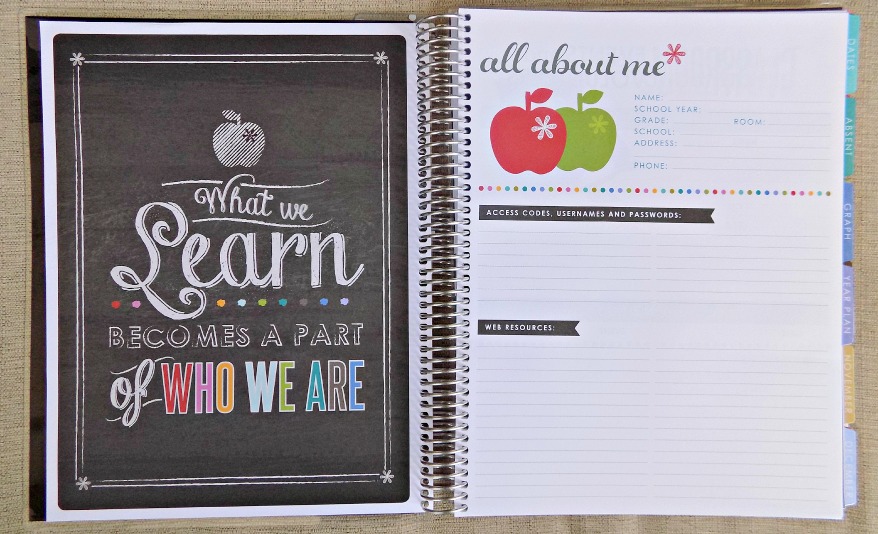 What we
Learn
BECOMES A PART
of WHO WE ARE
all about me
NAME:
SCHOOL YEAR:
GRADE: ROOM:
SCHOOL:
ADDRESS:
PHONE:
ACCESS CODES, USERNAMES AND PASSWORDS:
WEB RESOURCES:
DATES
ABSENT
GRAPH
YEAR PLAN